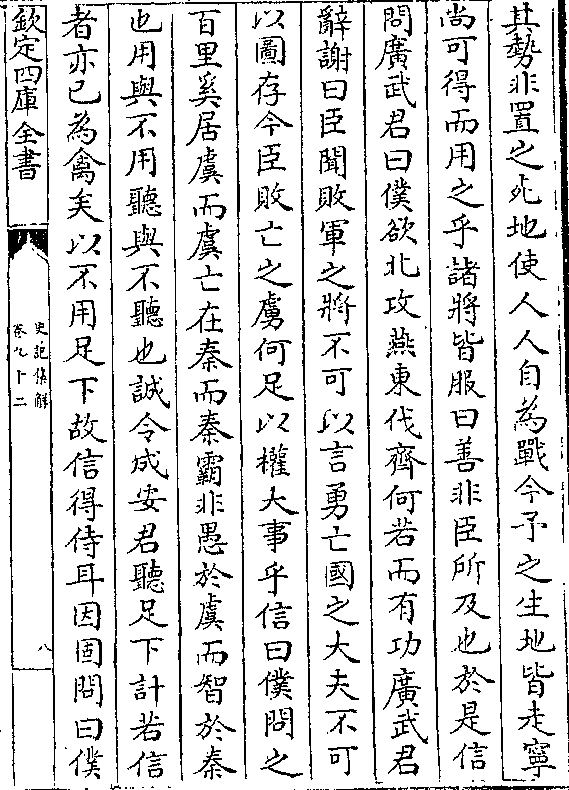 其勢非置之死地使人人自為戰今予之生地皆走寧
尚可得而用之乎諸將皆服曰善非臣所及也於是信
問廣武君曰僕欲北攻燕東伐齊何若而有功廣武君
辭謝曰臣聞敗軍之將不可以言勇亡國之大夫不可
以圖存今臣敗亡之虜何足以權大事乎信曰僕聞之
百里奚居虞而虞亡在秦而秦霸非愚於虞而智於秦
也用與不用聽與不聽也誠令成安君聽足下計若信
者亦已為禽矣以不用足下故信得侍耳因固問曰僕
欽定四庫全書
史記集解
卷九十二
八